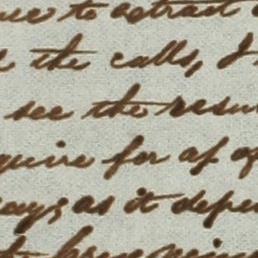 to extract
the calls, I
see the resu
quire for af of
ay; as it depe